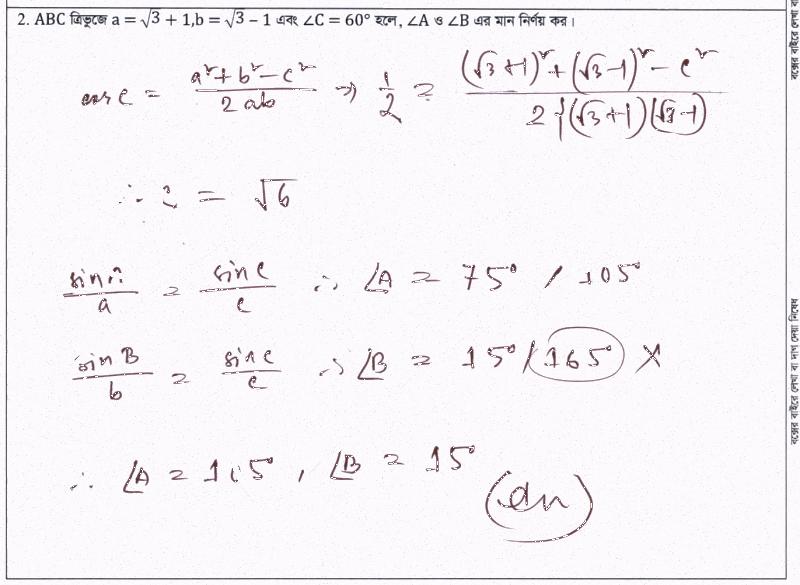 2. ABC ত্রিভুজে a = √3 + 1, b = √3 − 1 এবং ∠C = 60° হলে, ∠A ও ∠B এর মান নির্ণয় কর।
cos c = (a² + b² − c²) / 2ab ⇒ 1/2 = ((√3+1)² + (√3−1)² − c²) / 2{(√3+1)(√3−1)
∴ c = √6
sin A / a = sin C / c ∴ ∠A = 75° / 105°
sin B / b = sin c / c ∴ ∠B = 15° / 165° ×
∴ ∠A = 105°, ∠B = 15°
(An)
বক্সের বাইরে লেখা বা দাগ দেয়া নিষেধ
বক্সের বাইরে লেখা বা